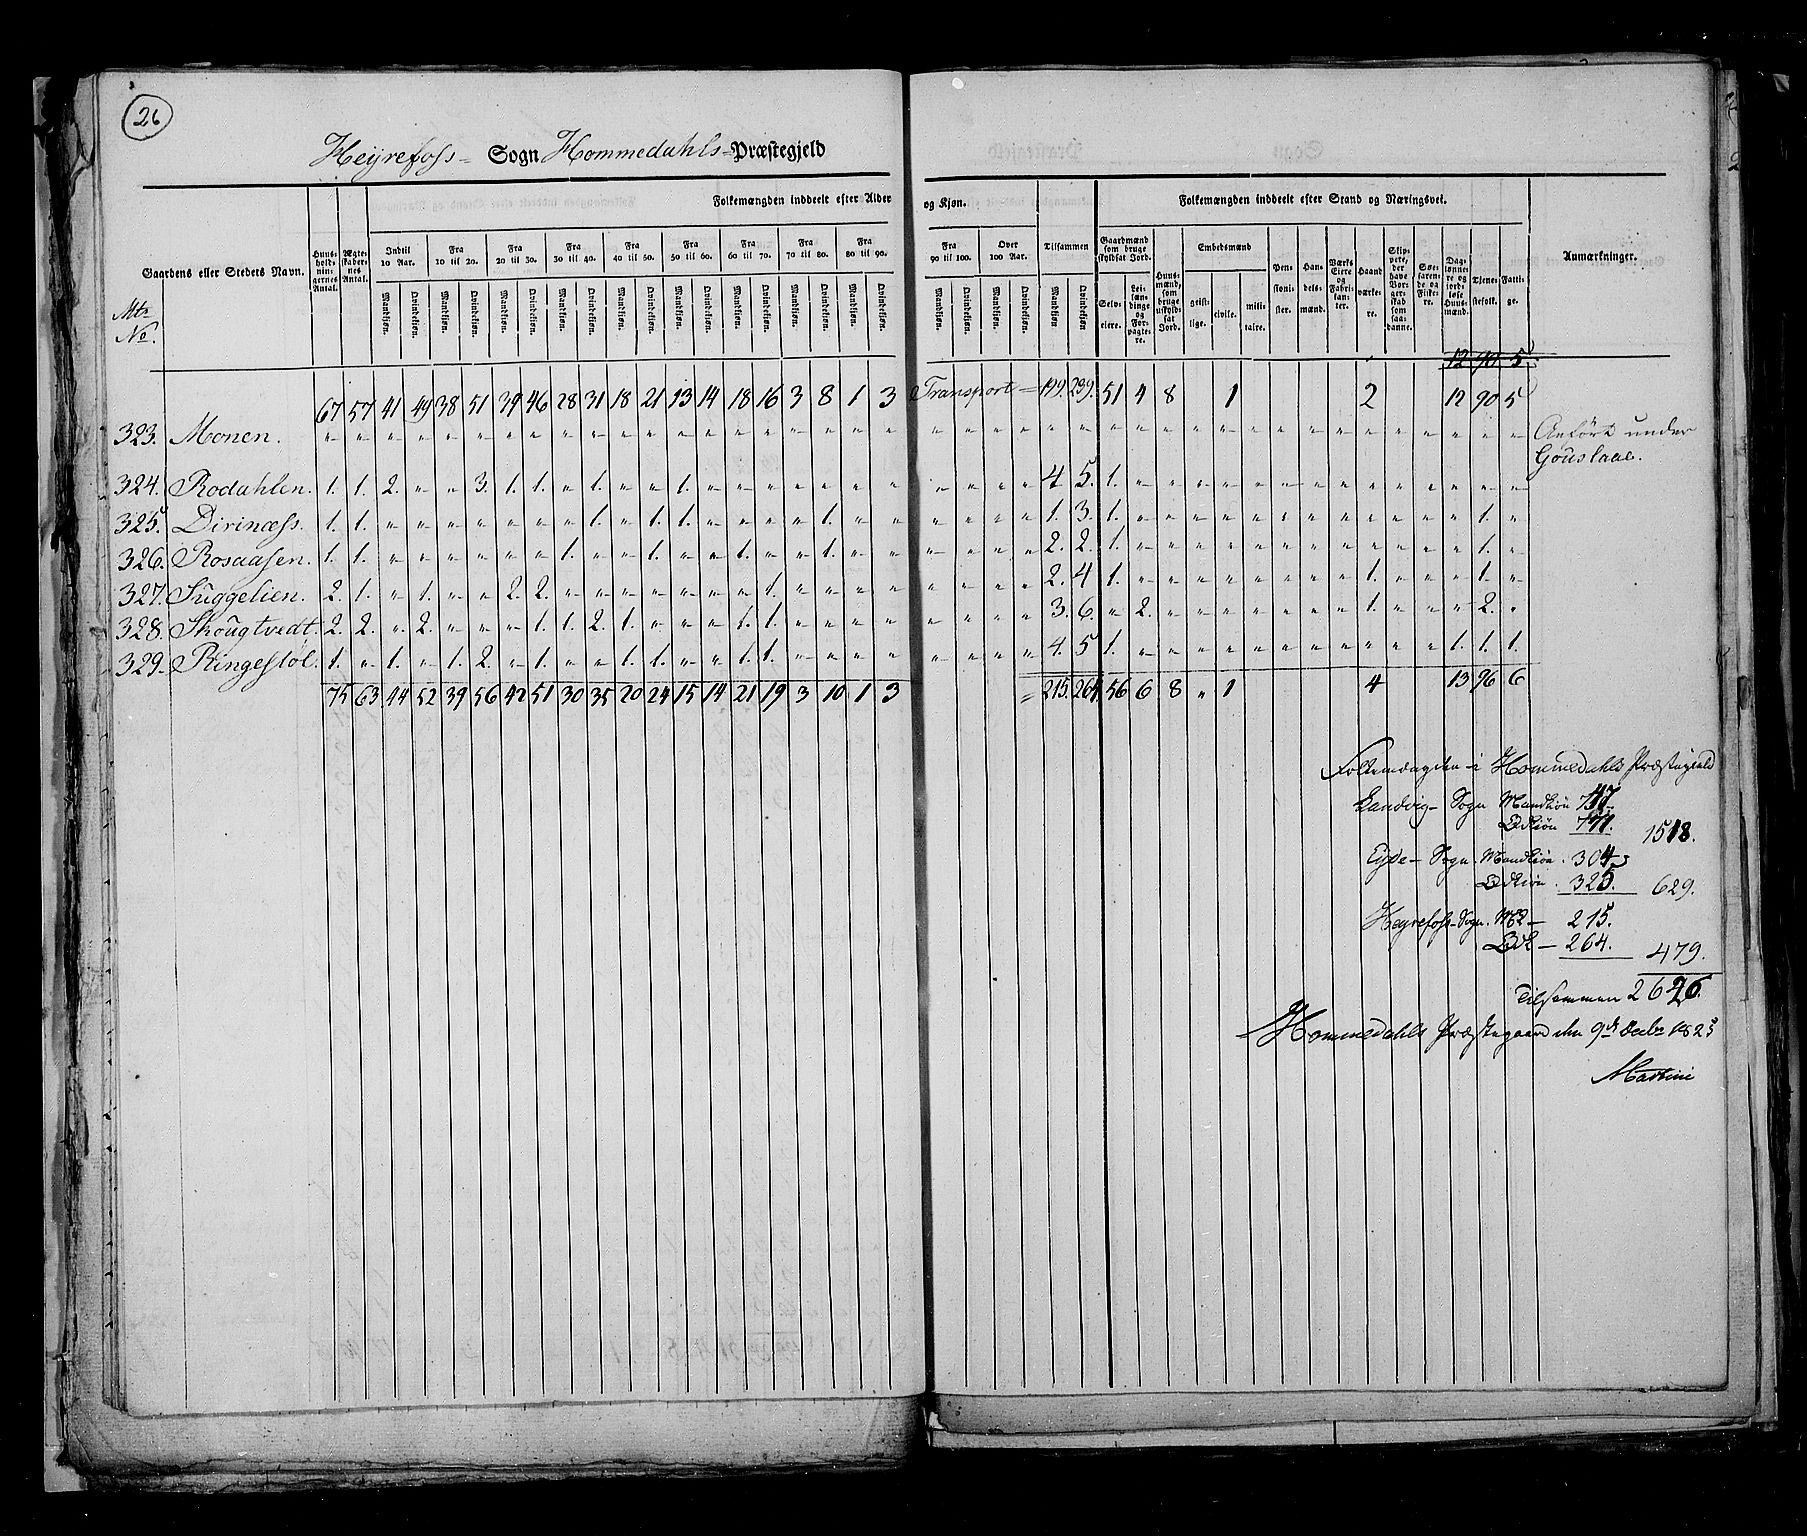 26
Heyrefoss- Sogn Hommedahls- Præstegjeld
Folkemængden inddeelt efter Alder og Kjøn. Folkemængden inddeelt efter Stand og Næringsvei.
Gaardens eller Steders Navn. Huusholdningernes Antal. Ægteskabernes Antal. Indtil 10 Aar. Fra 10 til 20. Fra 20 til 30. Fra 30 til 40. Fra 40 til 50. Fra 50 til 60. Fra 60 til 70. Fra 70 til 80. Fra 80 til 90. Fra 90 til 100. Over 100 Aar. Tilsammen Gaardmænd som bruge skyldsat Jord. Huusmænd, som bruge uskyldsat Jord. Embedsmænd Pensionister. Handelsmænd. Værks Eiere og Fabrikanter. Haandværkere. Skippere, der have Borgerskab som saadanne. Søefarende og Fiskere. Daglønnere og jordløse Huusmænd. Tjenestefolk. Fattige. Anmærkninger.
Mtr No.
Mandkjøn. Qvindekjøn. Mandkjøn. Qvindekjøn. Mandkjøn. Qvindekjøn. Mandkjøn. Qvindekjøn. Mandkjøn. Qvindekjøn. Mandkjøn. Qvindekjøn. Mandkjøn. Qvindekjøn. Mandkjøn. Qvindekjøn. Mandkjøn. Qvindekjøn. Mandkjøn. Qvindekjøn. Mandkjøn. Qvindekjøn. Mandkjøn. Qvindekjøn Selveiere. Leilændinge og Forpagtere. geistlige. civile. militaire.
12 90 5
67 57 41 49 38 51 39 46 28 31 18 21 13 14 18 16 3 8 1 3 Transport = 199. 239. 51 4 8 1 2 12 90 5
323. Monen. " " " " " " " " " " " " " " " " " " " " " " " " " " " " " " " " " " " " " " " " " Anført under
Gouslaae.
324. Rodahlen. 1. 1. 2. " " 3. 1. 1. " 1. " " 1. " " " " " " " " " " " 4. 5. 1. " " " " " " " " " " " " " "
325. Dirinæss. 1. 1. " " " " " " " 1. " 1. 1. " " " " 1. " " " " " " 1. 3. 1. " " " " " " " " " " " " 1. "
326. Rosaasen. 1. 1. " " " " " " 1. " " 1. " " 1. " " 1. " " " " " " 2. 2. 1. " " " " " " " " " " " " 1. "
327. Suggelien. 2. 1. " 1. " " 2. 2. " " " " " " " 1. " " " " " " " " 2. 4 1. " " " " " " " " 1. " " " 1. "
328. Skougtvedt. 2. 2. " 2. " " " 1. 1. 2. 1. " " " 1. 1. " " " " " " " " 3. 6. " 2. " " " " " " " 1. " " " 2. "
329. Ringestøl. 1. " 1. " 1. 2. " 1. " " 1. 1. " " 1. 1. " " " " " " " " 4. 5. 1. " " " " " " " " " " " 1. 1. 1.
75 63 44 52 39 56 42 51 30 35 20 24 15 14 21 19 3 10 1 3 = 215. 264. 56 6 8 " 1 4 13 96 6
Folkemængden i Hommedahls Præstegield
Landvig- Sogn Mandkiøn 747.
Qvkiøn 771. 1518.
Eyde- Sogn. Mandkiøn. 304
Qvkiøn. 325. 629.
Heyrefoss- Sogn. MK — 215.
QvK — 264. 479.
Tilsammen 2626.
Hommedahls Præstegaard den 9de Decbr 1825